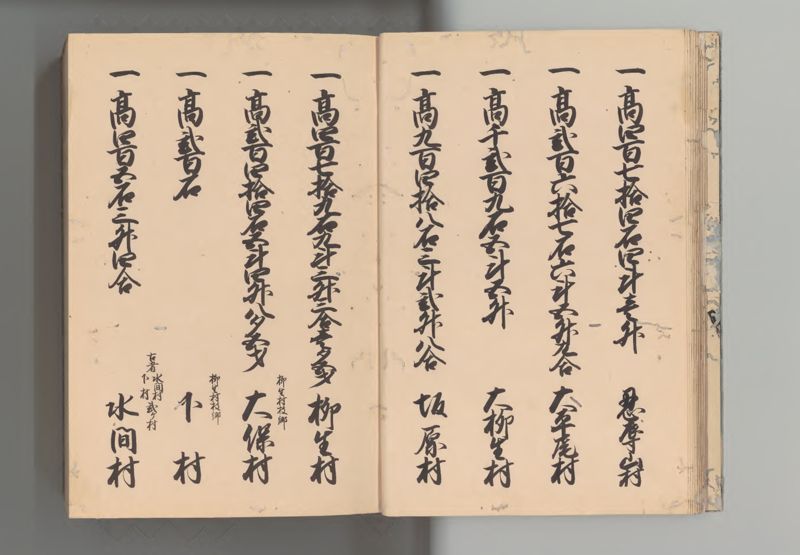 一 高四百七拾四石四斗壱升 忍辱山村
一 高弐百六拾七石六斗五升九合 大平尾村
一 高千弐百九石五斗五升 大柳生村
一 高九百四拾八石三斗弐升八合 坂原村
一 高四百七拾九石九斗三升二合壱夕五才 柳生村
柳生村枝郷
一 高弐百四拾四石五斗四升八夕五才 大保村
柳生村枝郷
一 高弐百石 下村
古者水間村
下村弐ヶ村
一 高四百五石三升四合 水間村